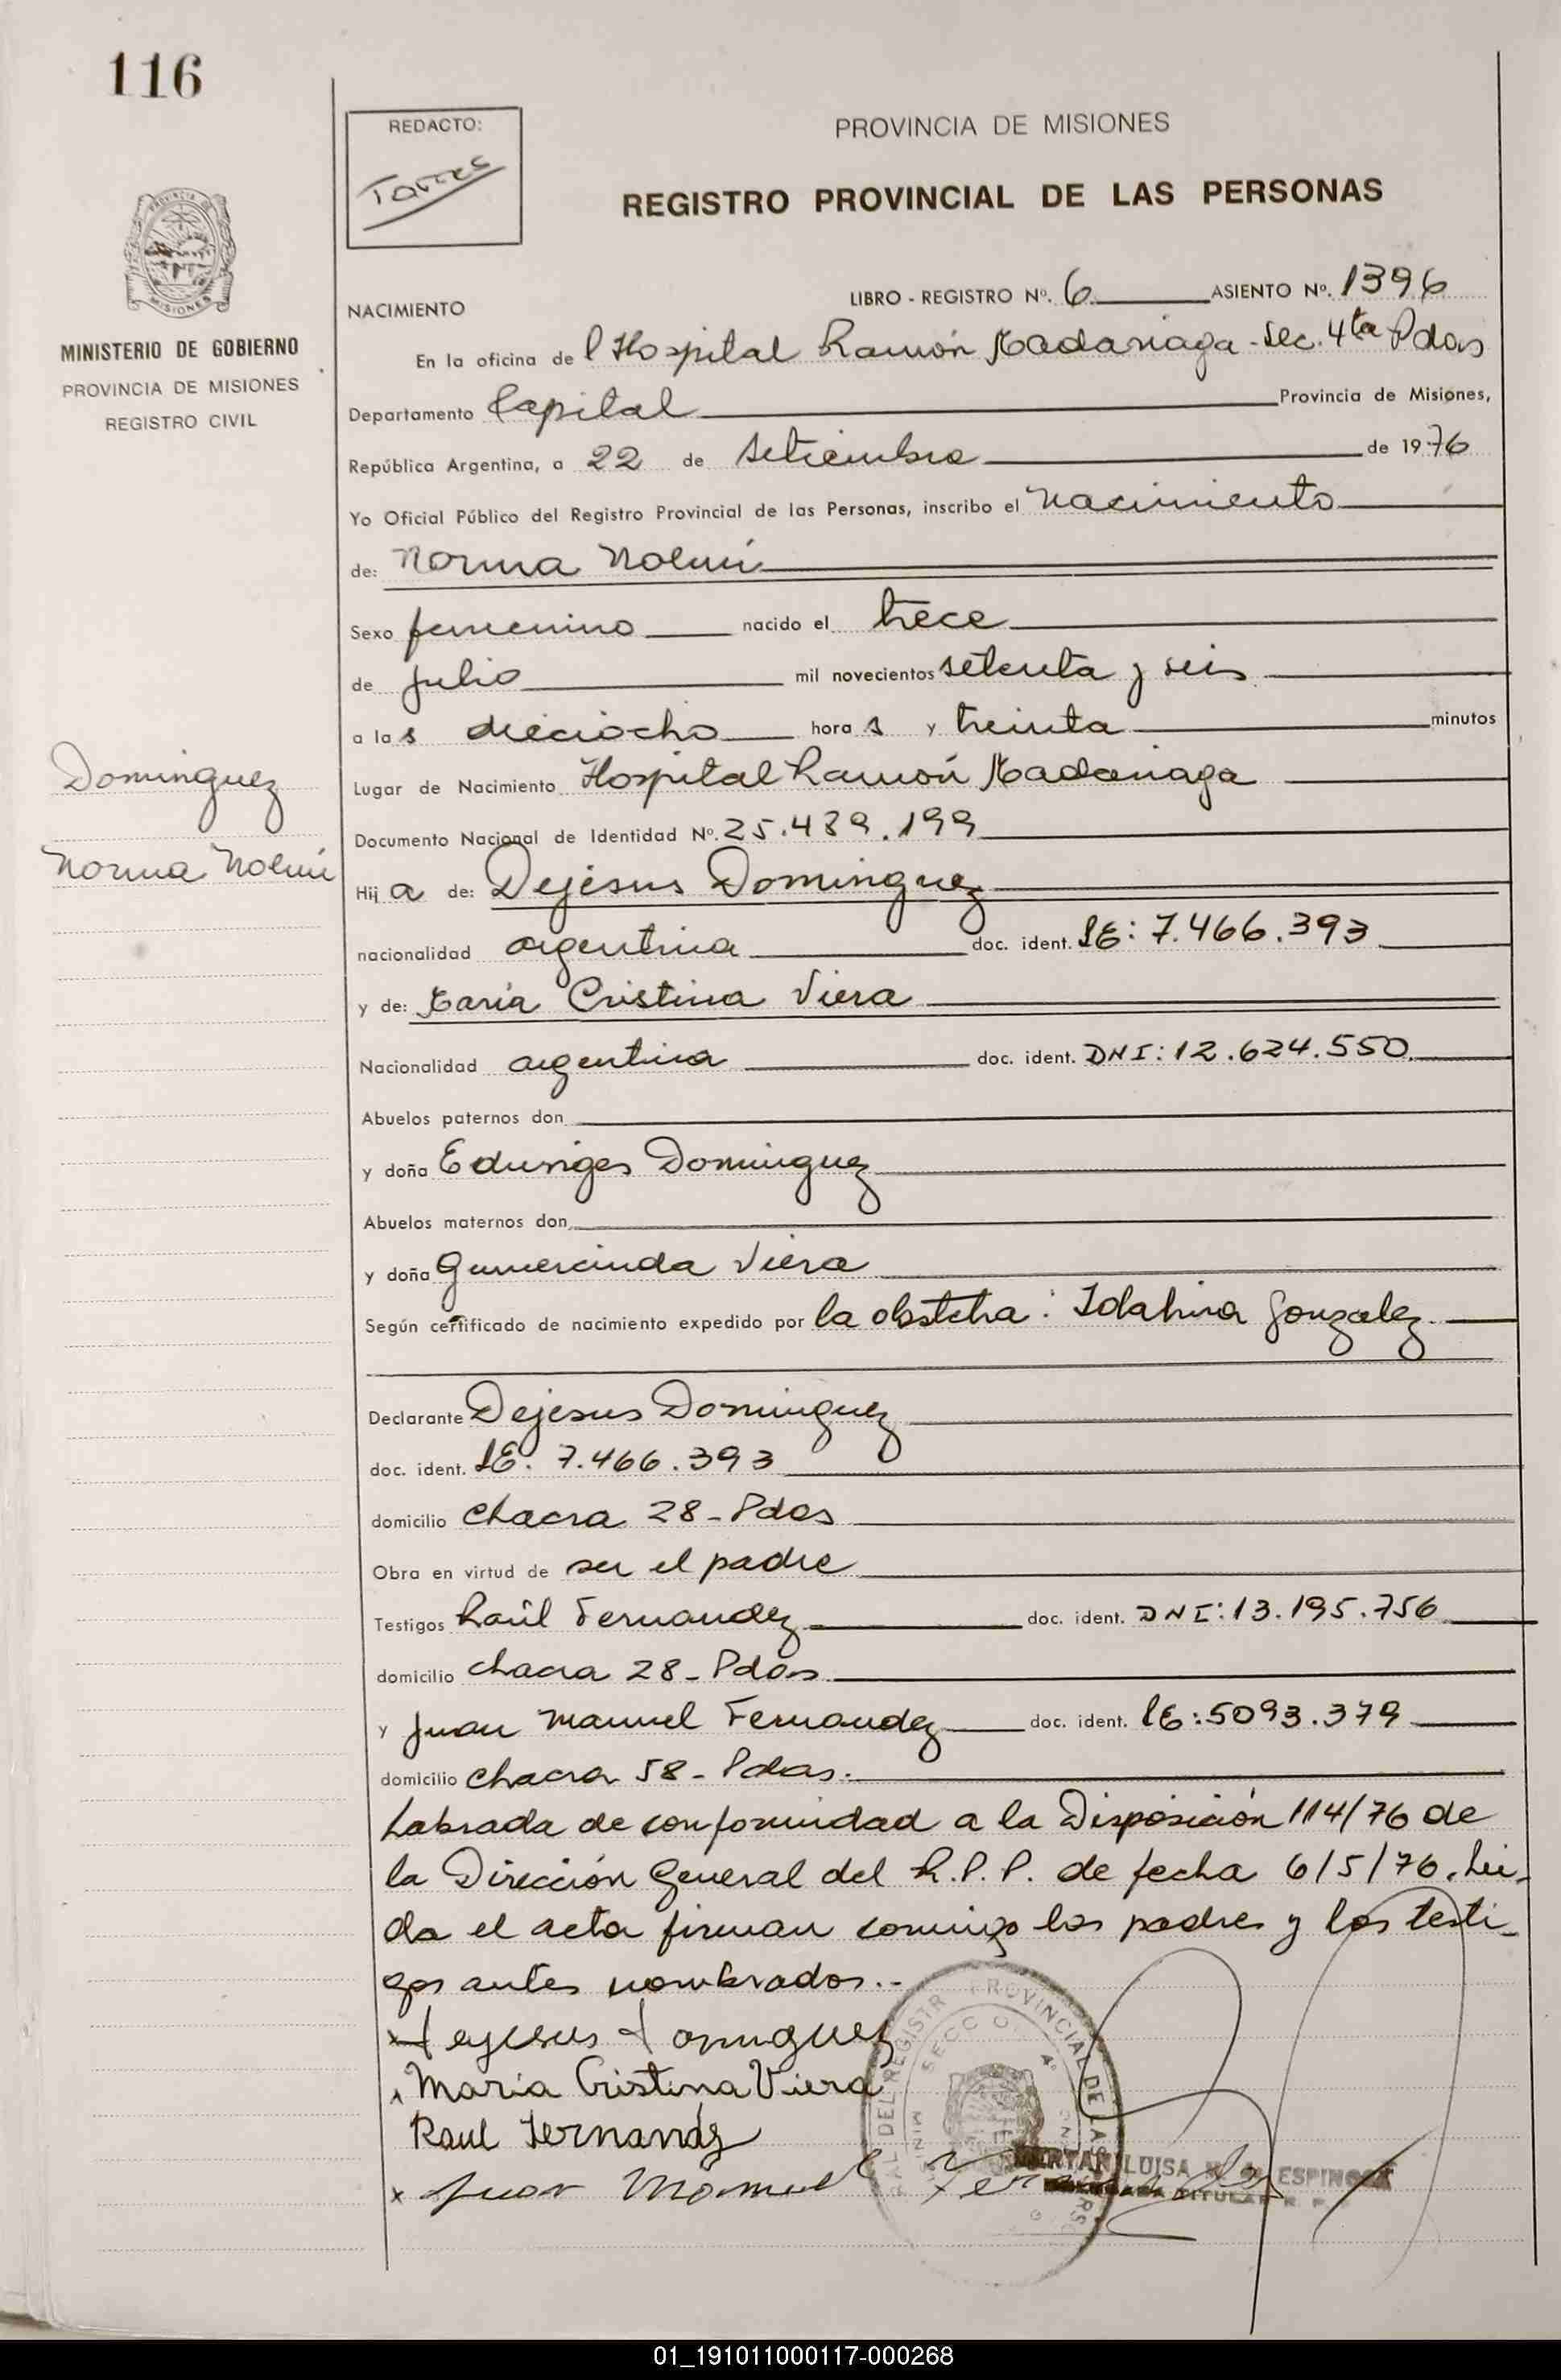 116
REDACTO:
Torres
PROVINCIA DE MISIONES
REGISTRO PROVINCIAL DE LAS PERSONAS
MINISTERIO DE GOBIERNO
PROVINCIA DE MISIONES
REGISTRO CIVIL
LIBRO - REGISTRO Nº. 6 ASIENTO Nº. 1396
NACIMIENTO
En la oficina de l Hospital Ramón Madariaga - Sec. 4ta Pdas
Departamento Capital Provincia de Misiones,
República Argentina, a 22 de setiembre de 1976
Yo Oficial Público del Registro Provincial de las Personas, inscribo el nacimiento
de: Norma Noemí
Sexo femenino nacido el trece
de julio mil novecientos setenta y seis
a las dieciocho horas y treinta minutos
Dominguez
Norma Noemí
Lugar de Nacimiento Hospital Ramón Madariaga
Documento Nacional de Identidad Nº. 25.489.199
Hija de: Dejesus Dominguez
nacionalidad argentina doc. ident. LE: 7.466.393
y de: María Cristina Viera
Nacionalidad argentina doc. ident. DNI: 12.624.550
Abuelos paternos don
y doña Eduviges Dominguez
Abuelos maternos don
y doña Gumercinda Viera
Según certificado de nacimiento expedido por la obstetra: Idalina Gonzalez
Declarante Dejesus Dominguez
doc. ident. LE. 7.466.393
domicilio chacra 28 - Pdas
Obra en virtud de ser el padre
Testigos Raúl Fernandez doc. ident. DNI: 13.195.756
domicilio chacra 28 - Pdas
y Juan Manuel Fernandez doc. ident. LE: 5093.379
domicilio chacra 58 - Pdas.
Labrada de conformidad a la Disposición 114/76 de
la Dirección General del R.P.P. de fecha 6/5/76. Lei-
da el acta firman conmigo los padres y los testi-
gos antes nombrados.-
x Dejesus Dominguez
x Maria Cristina Viera
Raul Fernandez
x Juan Manuel Fernandez
LUISA ESPINOZA
TITULAR
01_191011000117-000268